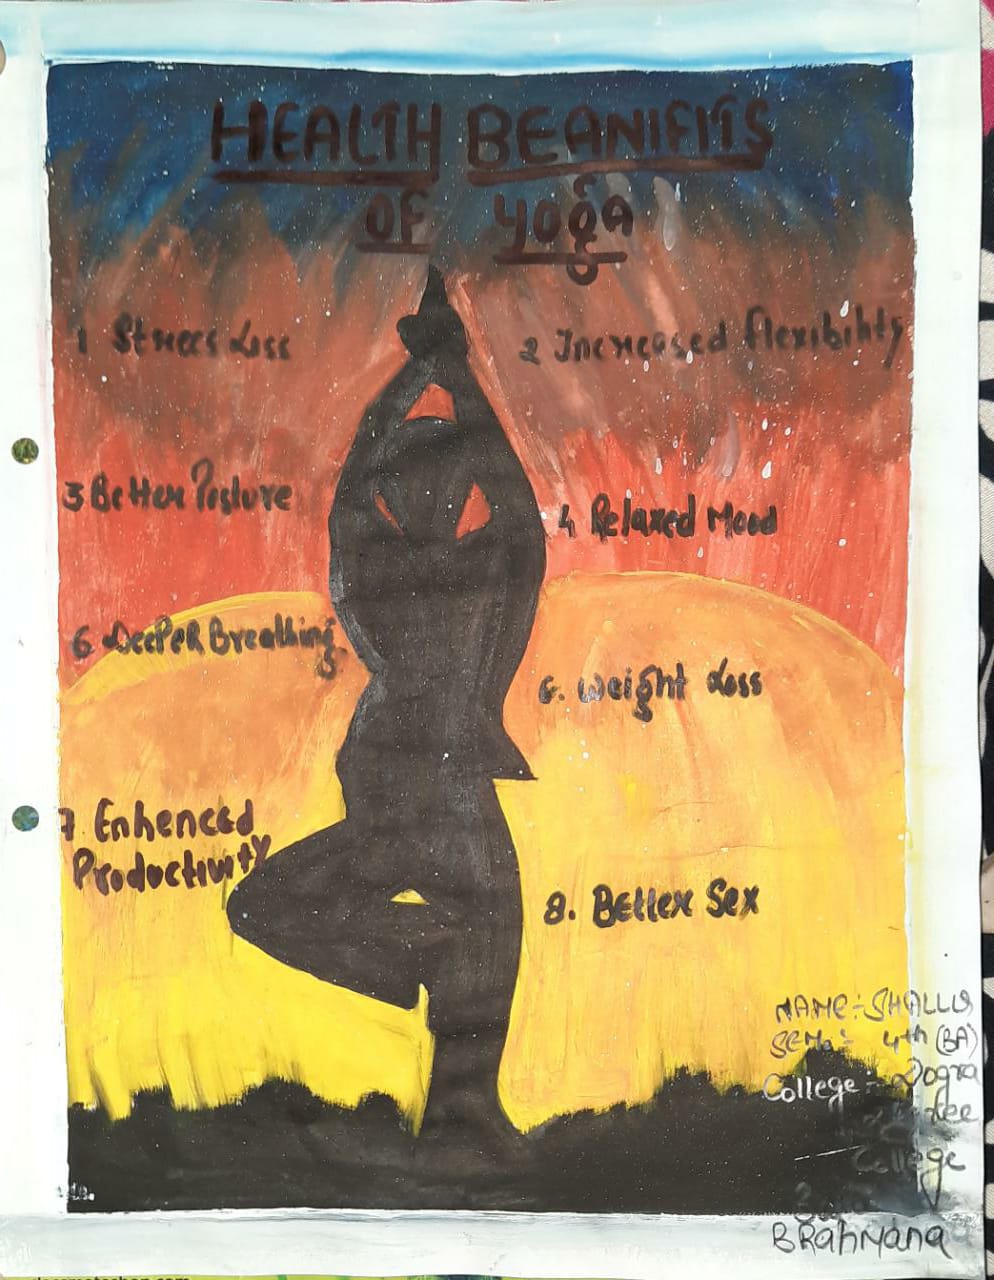 HEALTH BEANIFITS
OF YOGA
1 Stress Loss
2 Increased flexibility
3 Better Posture
4 Relaxed Mood
6 Deeper Breathing
6. Weight Loss
7 Enhenced
Productivity
8. Better Sex
NAME:- SHALLU
SEM:- 4th (BA)
College:- Dogra
College
BRahmana